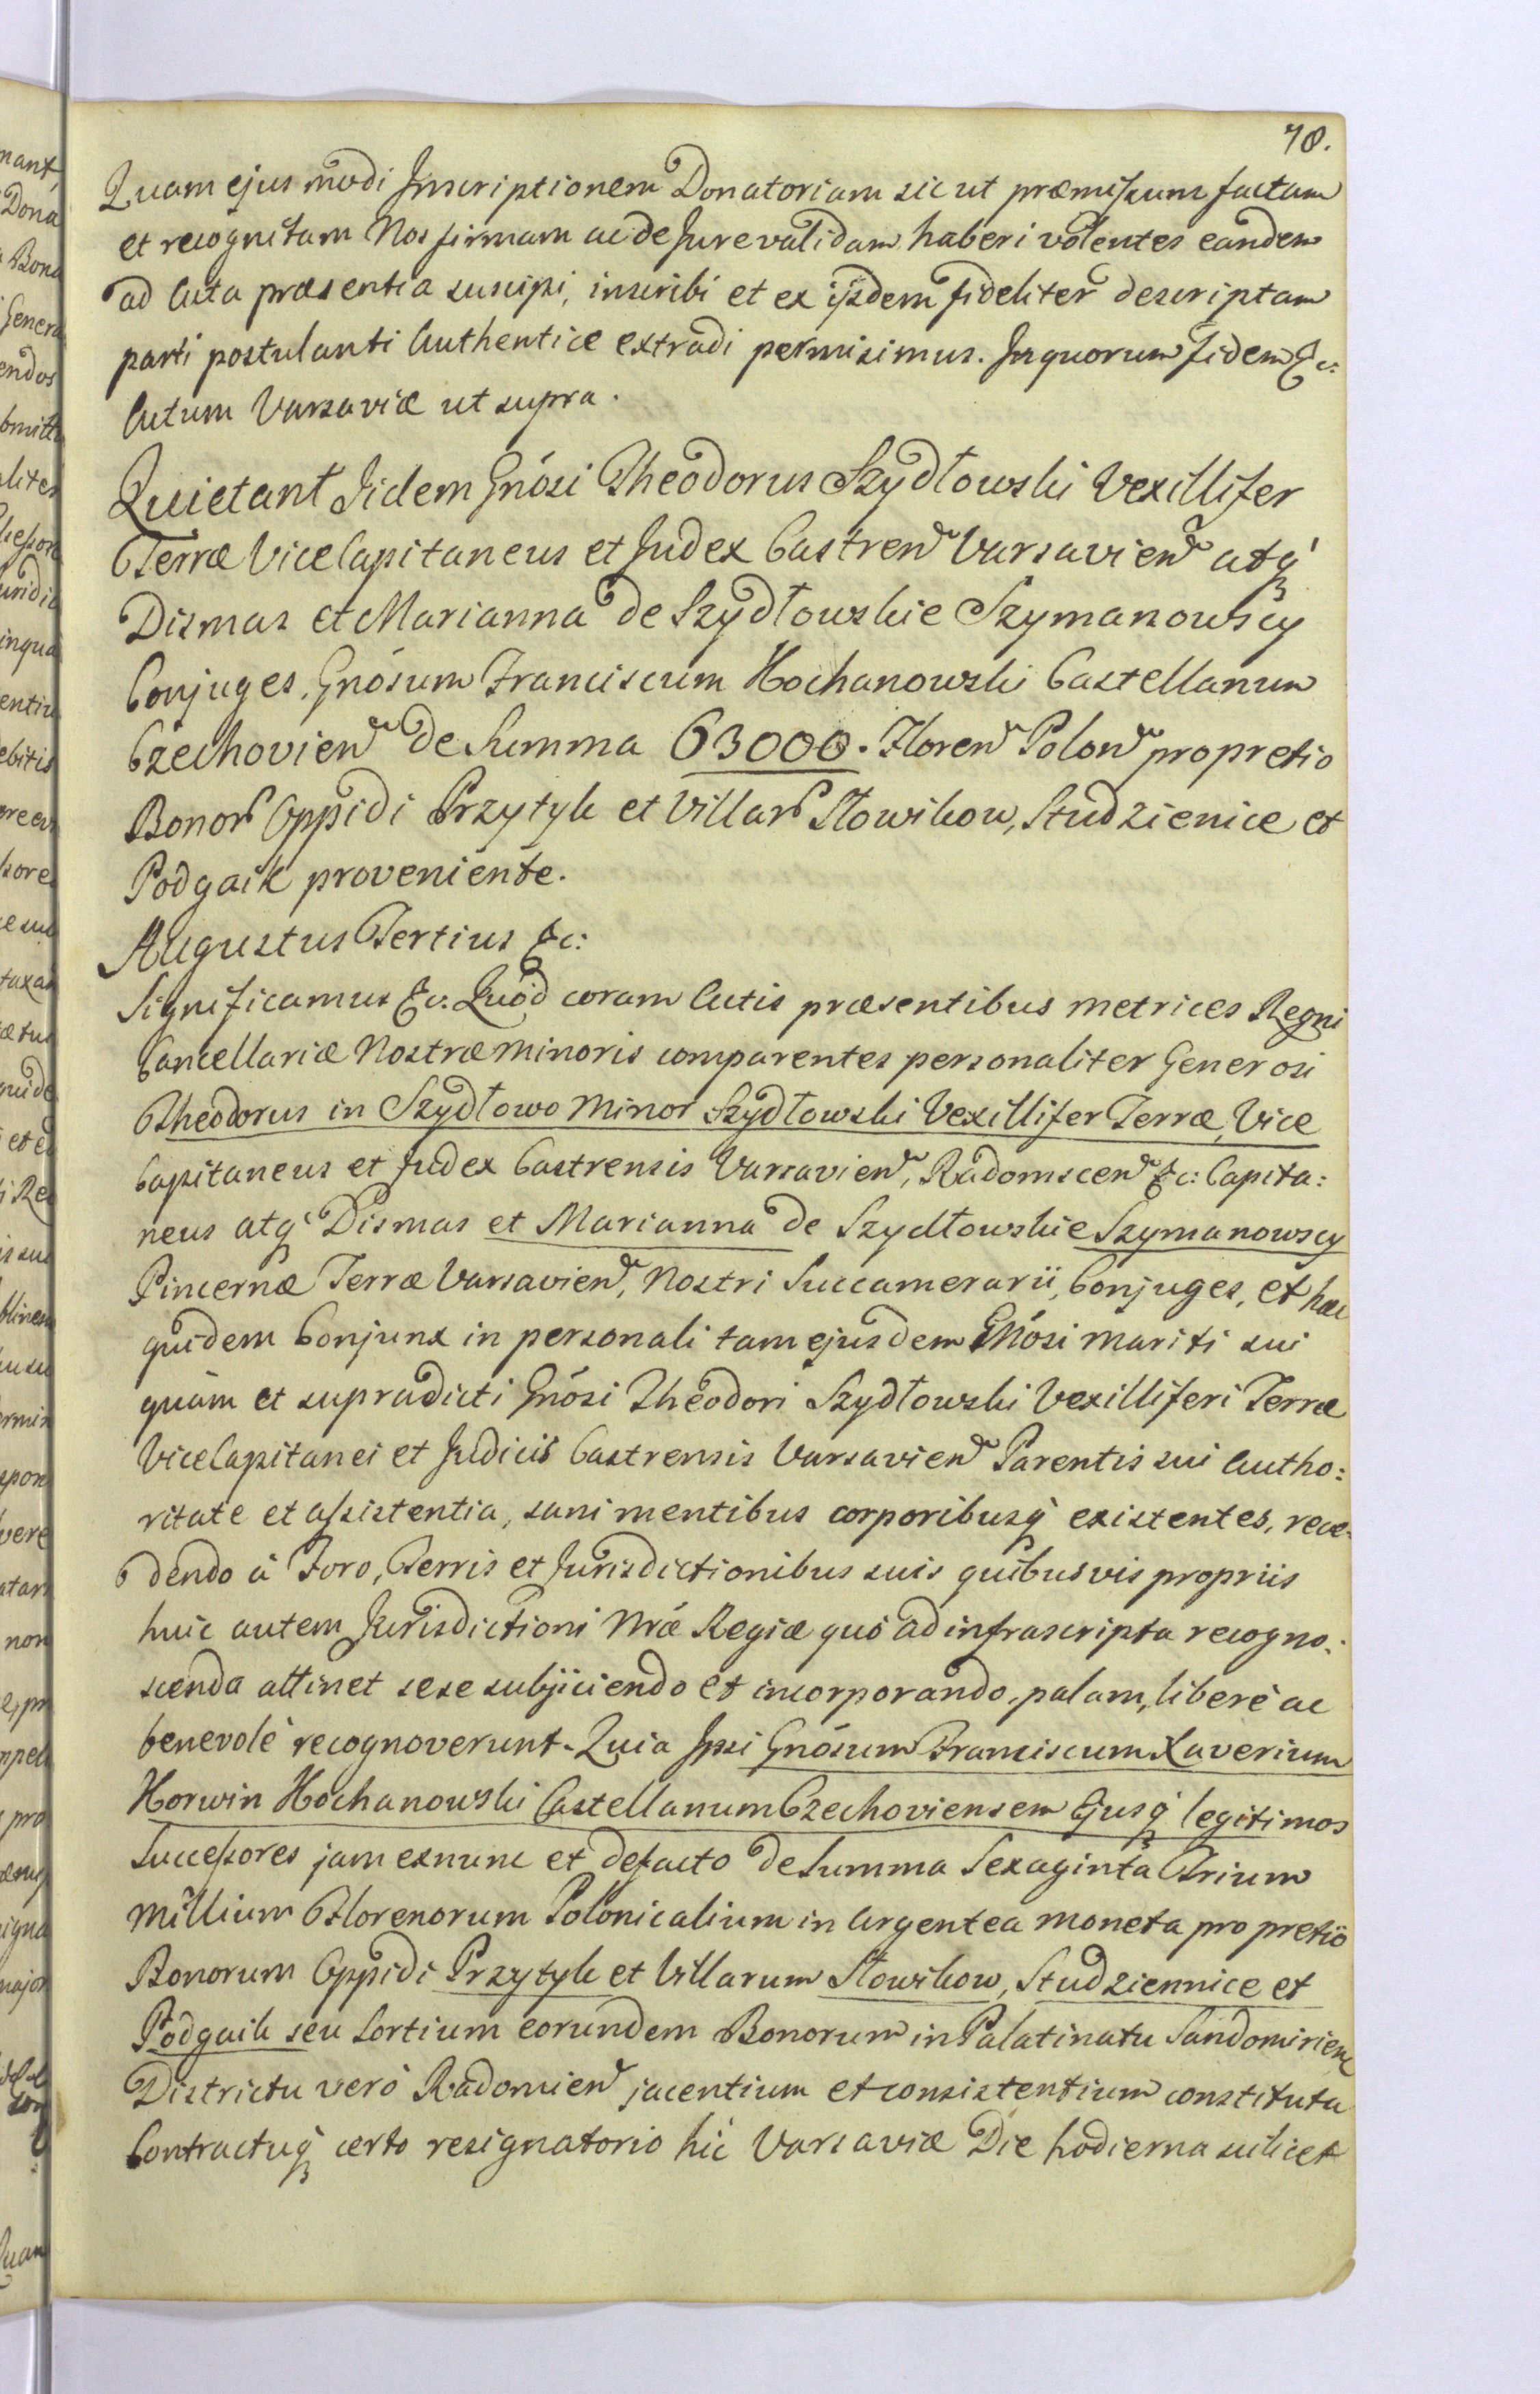 78.
Quam ejus modi Inscriptionem Donatoriam sic ut præmissum factam
et recognitam Nos firmam ac de Jure validam haberi volentes eandem
ad Acta præsentia suscipi, inscribi et ex ijsdem fideliter descriptam
parti postulanti Authentice extradi permisimus. In quorum fidem &c:
Actum Varsaviæ ut supra.
Quietant Iidem Gnósi Theodorus Szydłowski Vexillifer
Terræ ViceCapitaneus et Judex Castren Varsavien atq́
Dismas et Marianna de Szydłowskie Szymanowscy
Conjuges, Gnósum Franciscum Kochanowski Castellanum
Czechovien de Summa 63000. Floren Polon pro pretio
Bonor Oppidi Przytyk et Villar Słowikow, Studzienice et
Podgaik proveniente.
Augustus Tertius &c:
Significamus &c: Quod coram Actis præsentibus metrices Regni
Cancellariæ Nostræ minoris comparentes personaliter Generosi
Theodorus in Szydłowo minor Szydłowski Vexillifer Terræ, Vice
Capitaneus et Judex Castrensis Varsavien, Radomscen &c: Capita:
neus atq́ Dismas et Marianna de Szydłowskie Szymanowscy
Pincernæ Terræ Varsavien, Nostri Succamerarii, Conjuges, et hæc
quidem Conjunx in personali tam ejusdem Gnósi mariti sui
quàm et supradicti Gnósi Theodori Szydłowski Vexilliferi Terræ
ViceCapitanei et Judicis Castrensis Varsavien Parentis sui Autho:
ritate et assistentia, sani mentibus corporibusq́ existentes, rece:
dendo à Foro, Terris et Jurisdictionibus suis quibusvis propriis
huic autem Jurisdictioni Nræ Regiæ quò ad infrascripta recogno:
scenda attinet sese subjiciendo et incorporando, palam, liberè ac
benevolè recognoverunt. Quia Ipsi Gnósum Franciscum Xaverium
Korwin Kochanowski Castellanum Czechoviensem Ejusq́ legitimos
Successores jam exnunc et defacto de Summa Sexaginta Trium
Millium Florenorum Polonicalium in Argentea moneta pro pretio
Bonorum Oppidi Przytyk et Villarum Słowikow, Studziennice et
Podgaik seu Sortium eorundem Bonorum in Palatinatu Sandomirien
Districtu verò Radomien jacentium et consistentium constituta
Contractuq́ certo resignatorio hìc Varsaviæ Die hodierna scilicet